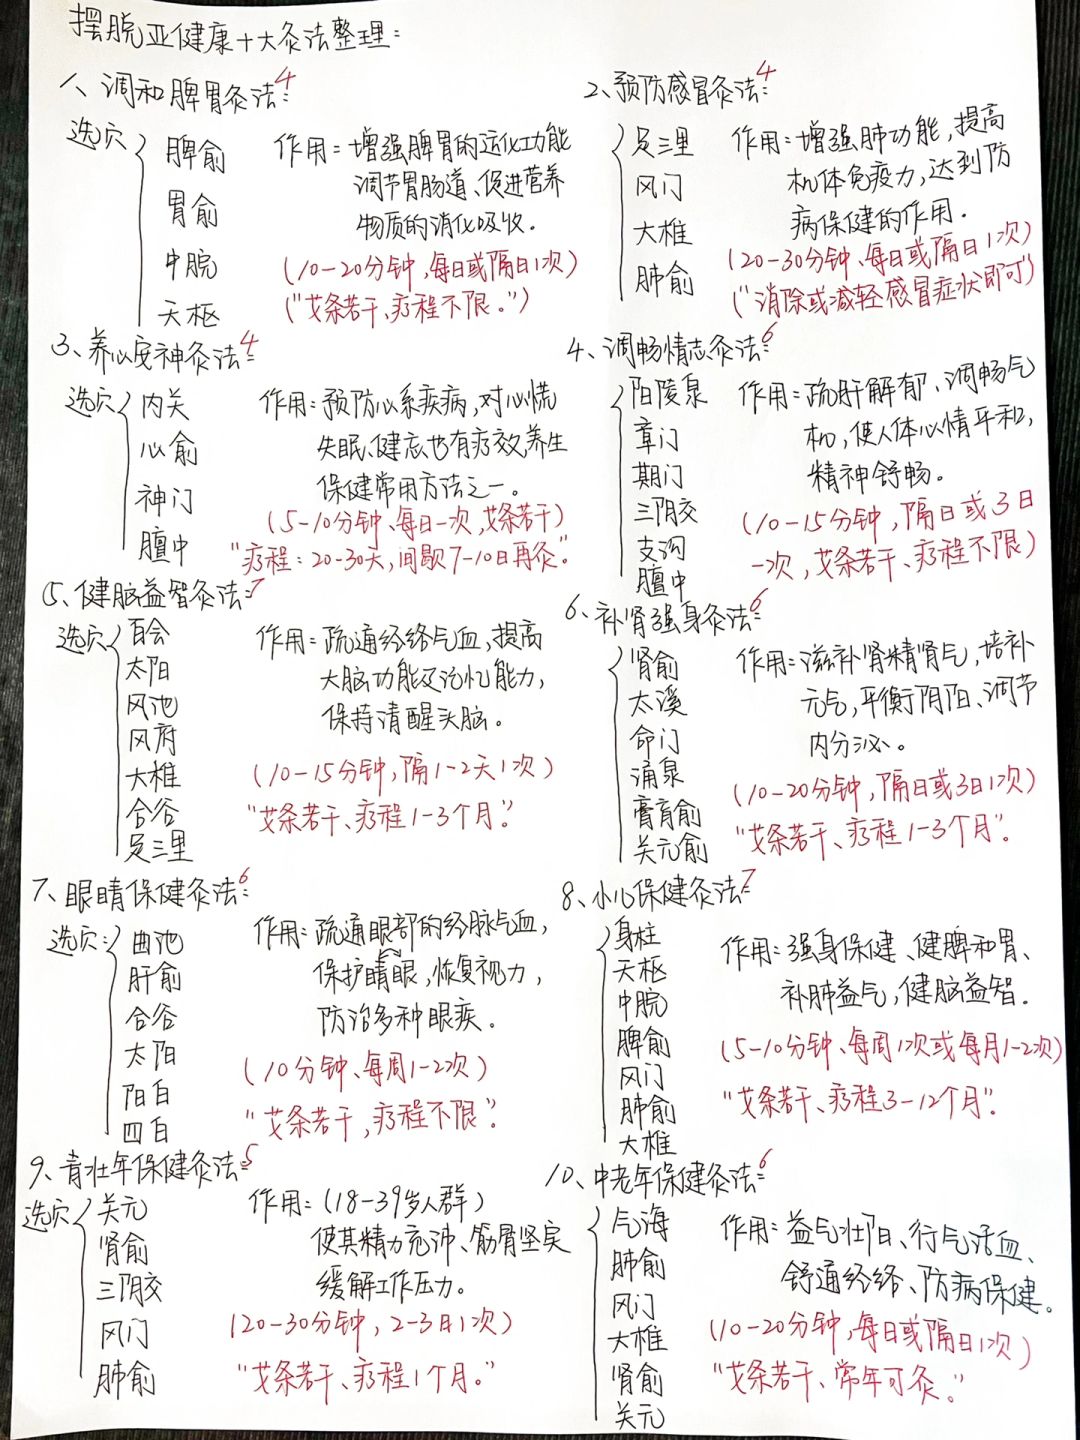 摆脱亚健康十大灸法整理:
1、调和脾胃灸法:4
选穴
脾俞
胃俞
中脘
天枢
作用:增强脾胃的运化功能
调节胃肠道、促进营养
物质的消化吸收.
(10-20分钟,每日或隔日1次)
("艾条若干、疗程不限。")
2、预防感冒灸法:4
足三里
风门
大椎
肺俞
作用:增强肺功能,提高
机体免疫力,达到防
病保健的作用.
(20-30分钟、每日或隔日1次)
("消除或减轻感冒症状即可")
3、养心安神灸法:4
选穴
内关
心俞
神门
膻中
作用:预防心系疾病,对心慌
失眠、健忘也有疗效,养生
保健常用方法之一。
(5-10分钟、每日一次,艾条若干)
"疗程:20-30天,间歇7-10日再灸".
4、调畅情志灸法:6
阳陵泉
章门
期门
三阴交
支沟
膻中
作用:疏肝解郁、调畅气
机,使人体心情平和,
精神舒畅。
(10-15分钟,隔日或3日
一次,艾条若干、疗程不限)
5、健脑益智灸法:7
选穴
百会
太阳
风池
风府
大椎
合谷
足三里
作用:疏通经络气血、提高
大脑功能及记忆能力,
保持清醒头脑。
(10-15分钟,隔1-2天1次)
"艾条若干、疗程1-3个月".
6、补肾强身灸法:6
肾俞
太溪
命门
涌泉
膏肓俞
关元俞
作用:滋补肾精肾气,培补
元气,平衡阴阳、调节
内分泌、。
(10-20分钟,隔日或3日1次)
"艾条若干、疗程1-3个月".
7、眼睛保健灸法:6
选穴:
曲池
肝俞
合谷
太阳
阳白
四白
作用:疏通眼部的经脉气血,
保护睛眼,恢复视力,
防治多种眼疾。
(10分钟、每周1-2次)
"艾条若干,疗程不限".
8、小儿保健灸法:7
身柱
天枢
中脘
脾俞
风门
肺俞
大椎
作用:强身保健、健脾和胃、
补肺益气,健脑益智.
(5-10分钟、每周1次或每月1-2次)
"艾条若干、疗程3-12个月".
9、青壮年保健灸法:5
选穴
关元
肾俞
三阴交
风门
肺俞
作用:(18-39岁人群)
使其精力充沛、筋骨坚实
缓解工作压力。
(20-30分钟,2-3日1次)
"艾条若干、疗程1个月。"
10、中老年保健灸法:6
气海
肺俞
风门
大椎
肾俞
关元
作用:益气壮阳、行气活血、
舒通经络、防病保健。
(10-20分钟,每日或隔日1次)
"艾条若干、常年可灸。"